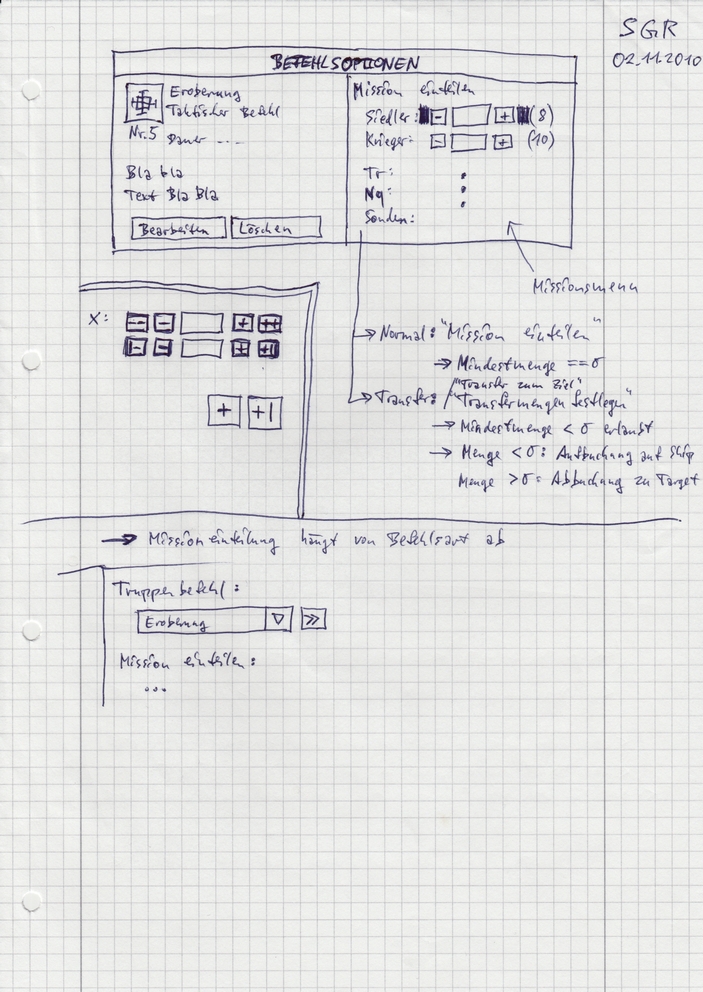 SGR
02.11.2010
BEFEHLSOPTIONEN
Eroberung
Taktischer Befehl
Nr. 5 Dauer ---
Bla bla
Text Bla Bla
Bearbeiten Löschen
Mission einteilen
Siedler: - + (8)
Krieger: - + (10)
Tr:
Nq:
Sonden:
Missionsmenü
X: -- - + ++
|- - + +|
+ +|
→ Normal: "Mission einteilen"
→ Mindestmenge == 0
"Transfer zum Ziel"
→ Transfer: / "Transfermengen festlegen"
→ Mindestmenge < 0 erlaubt
→ Menge < 0: Aufbuchung auf Ship
Menge > 0: Abbuchung zu Target
→ Missioneinteilung hängt von Befehlsart ab
Truppenbefehl:
Eroberung ▽ >>
Mission einteilen:
...